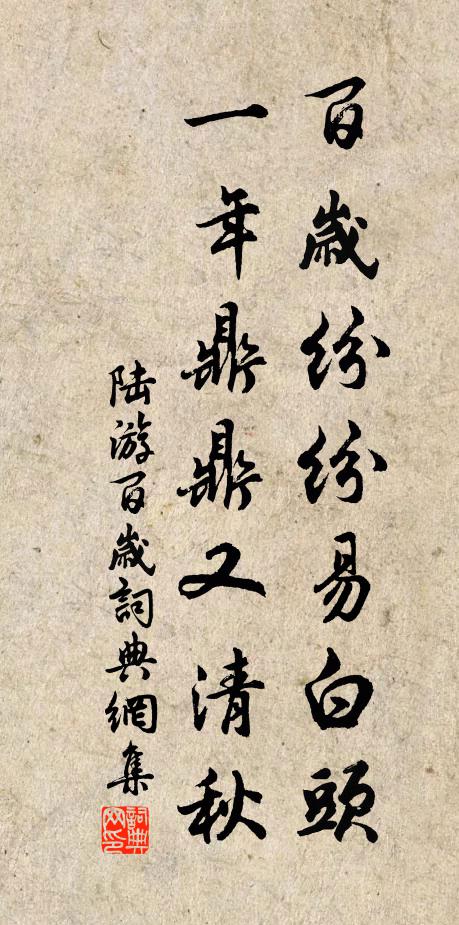 百歲紛紛易白頭
一年鼎鼎又清秋
陸游百歲詞典網集
詞典網印